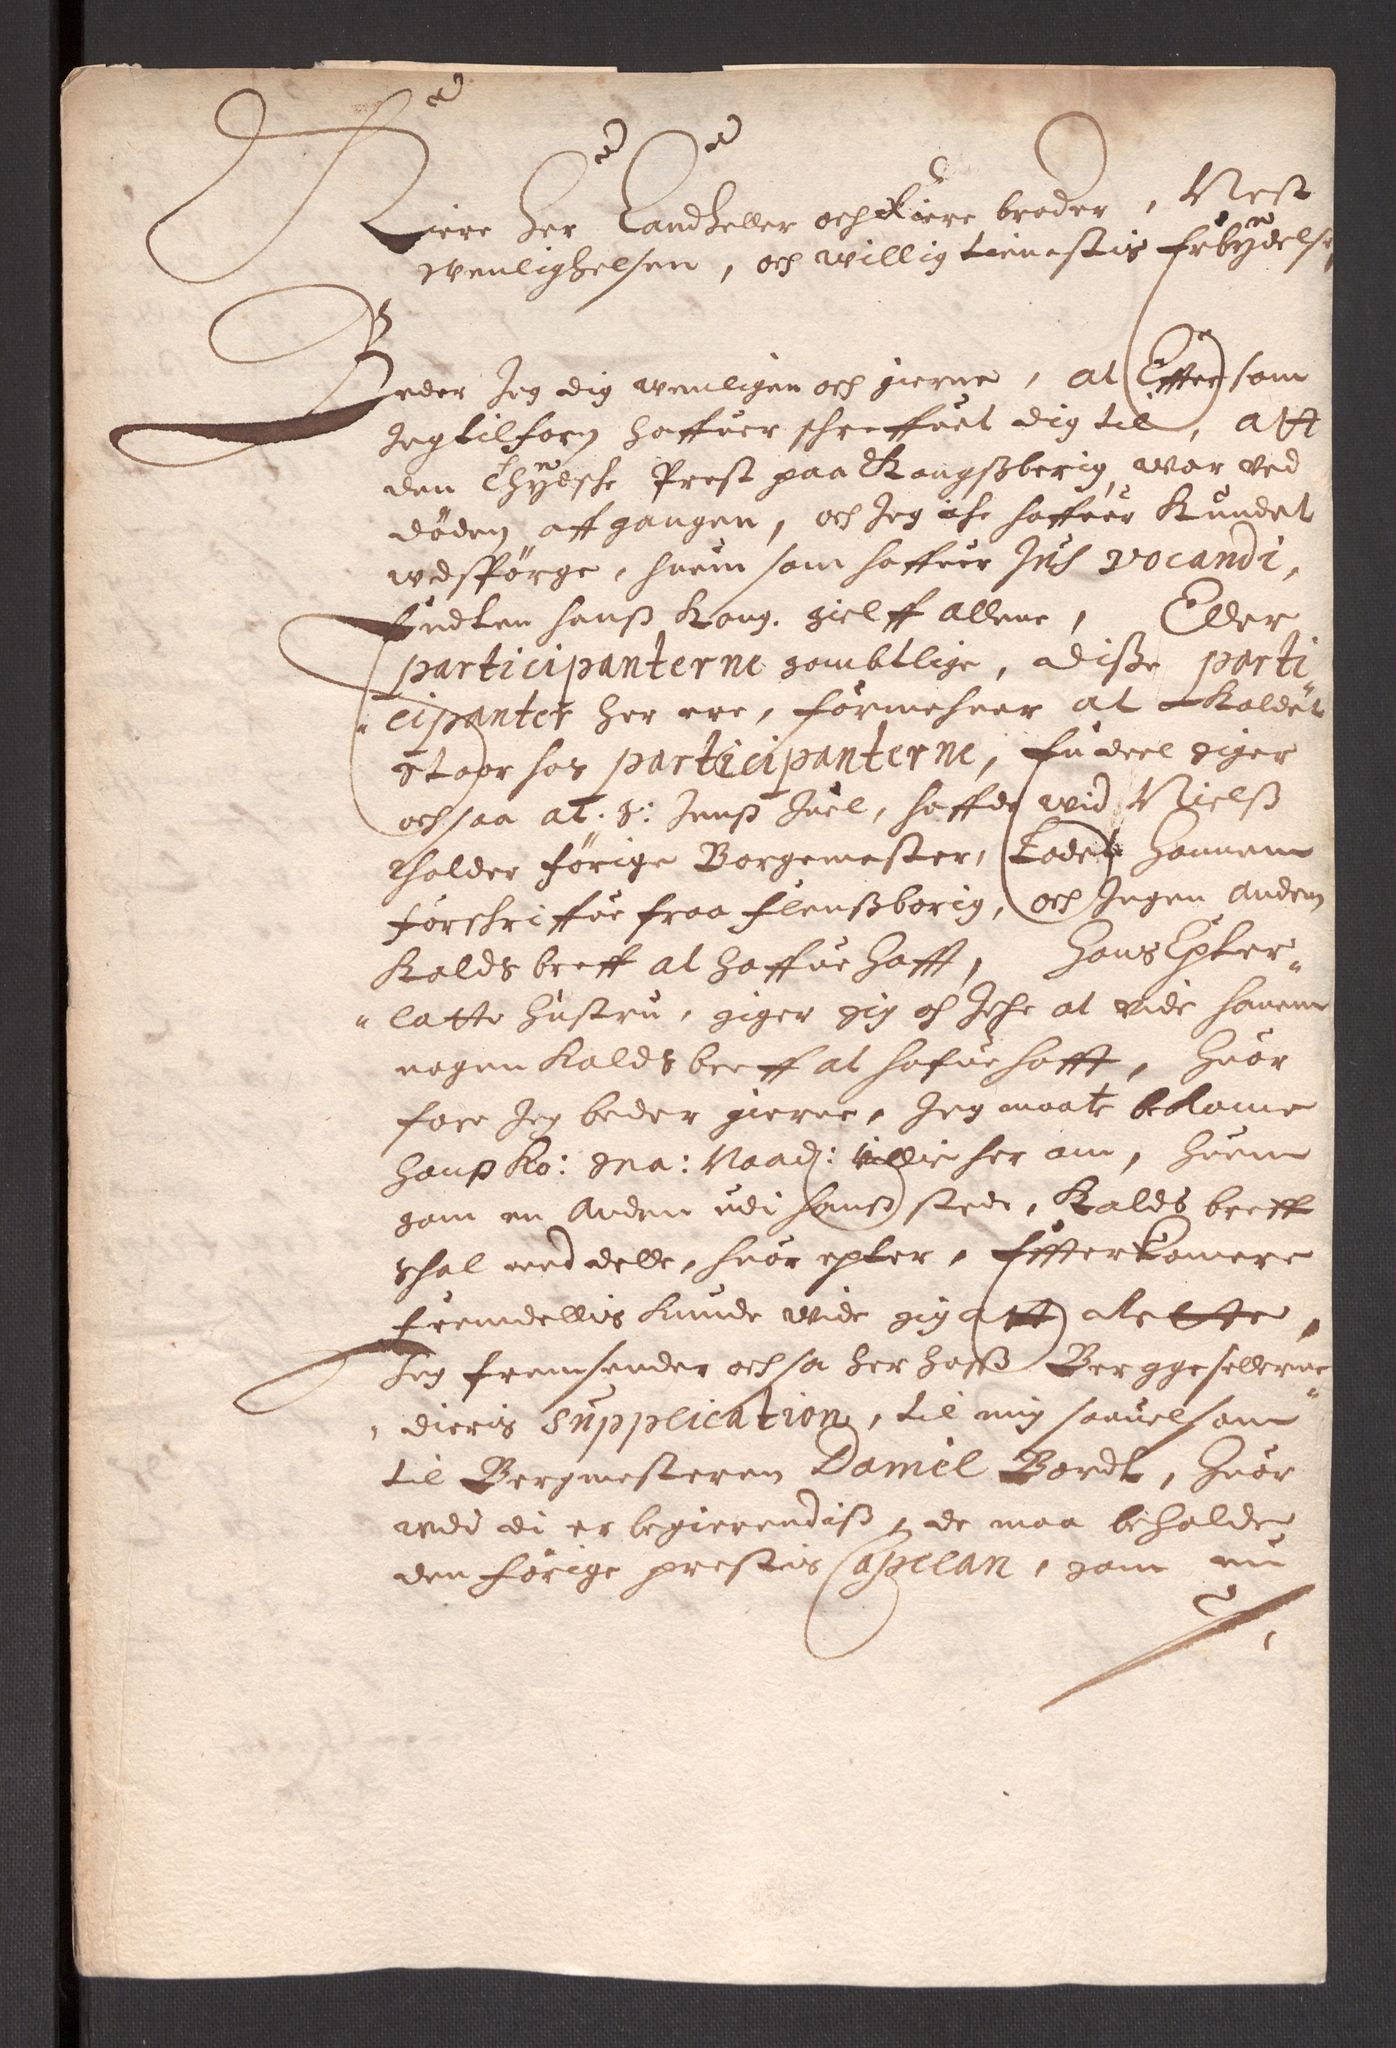 Kiere Her Candzeller och Kiere broder, Nest
venlighelsen, och willig tienestis Erbydelse,
Beder Jeg dig venligen och gierne, at Effter som
Jeg tilforn haffuer schreffuet dig til, att
den Thydsche Prest paa Kongßberig, war ved
døden aff gangen, och Jeg iche haffuer Kundet
udspørge, huem som haffuer Jus vocandi,
Endten hanß Kong. sielff allene, Eller
participanterne sambtlige, disse parti„
„cipanter her ere, formehner at Kaldet
staar hos participanterne, En deel siger
och saa at S: Jenß Juel, haffde wid Nielß
holder førige Borgemester, Ladet hannem
forschriffue fraa Flensborig, och Ingen anden
Kaldsbreff at haffue hafft, Hans Epter„
„latte Hustru, siger sig och Iche at vide hanem
nogen Kaldsbreff at hafue hafft, Huor
fore Jeg beder gierne, Jeg maate bekome
Hanß Ko: Ma: Naad: villie her om, huem
som en Anden udi hanß sted, Kalds breff
schal med delle, huor epter, Effterkomere
fremdellis kunde vide sig att rette,
Jeg fremsender och saa her hoß Berggesellerne„
„dieris supplication, til mig saauelsom
til Bergmesteren Daniel Bordt, huor
udi di er begierendiß, de maa beholde
den førige prestis Capelan, som nu